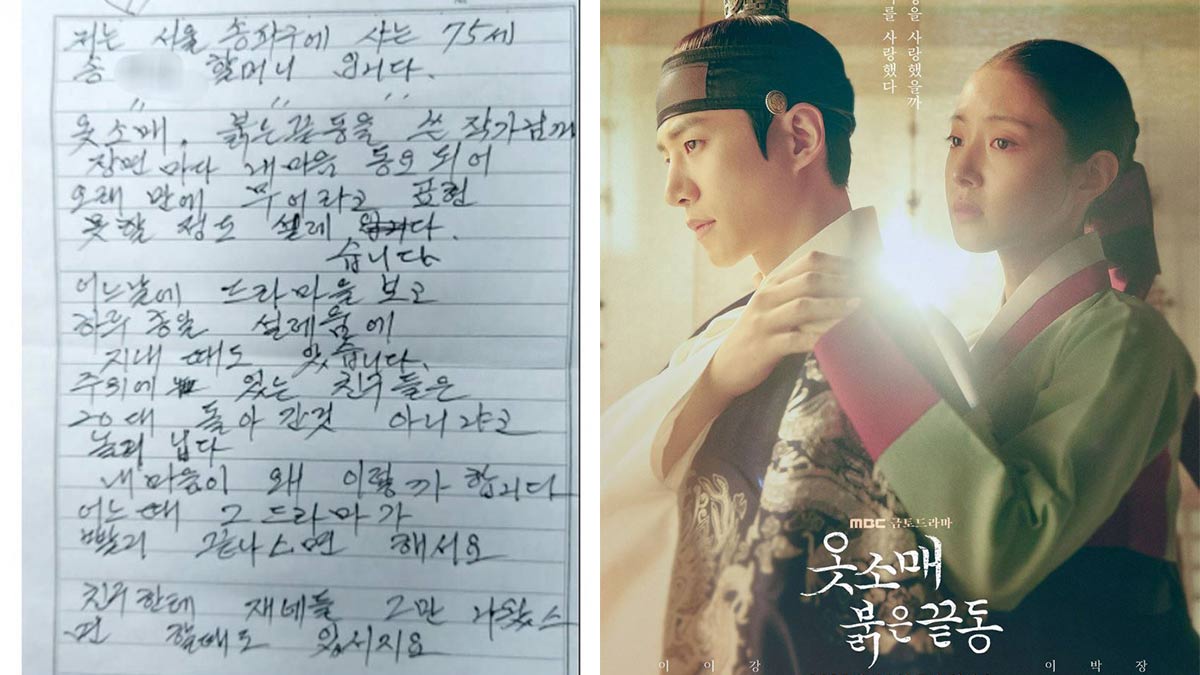 저는 서울 송파구에 사는 75세
송 할머니 입니다.
옷소매, 붉은끝동을 쓴 작가님께
장면 마다 내마음 동요 되어
오래 만에 무어라고 표현
못할 정도 설레
습니다
어느날에 드라마을 보고
하루 종일 설레움에
지내 때도 있습니다.
주위에 있는 친구들은
20대 돌아 간것 아니냐고
놀리 닙다
내 마음이 왜 이럴까 합니다
어느때 그드라마가
빨리 끝나스면 해서요
친구한테 재네들 그만 나왔스
면 할때도 있시지요
사랑했을까
를 사랑했다
MBC 금토드라마
옷소매
붉은끝동
이 이 강
이 박 장